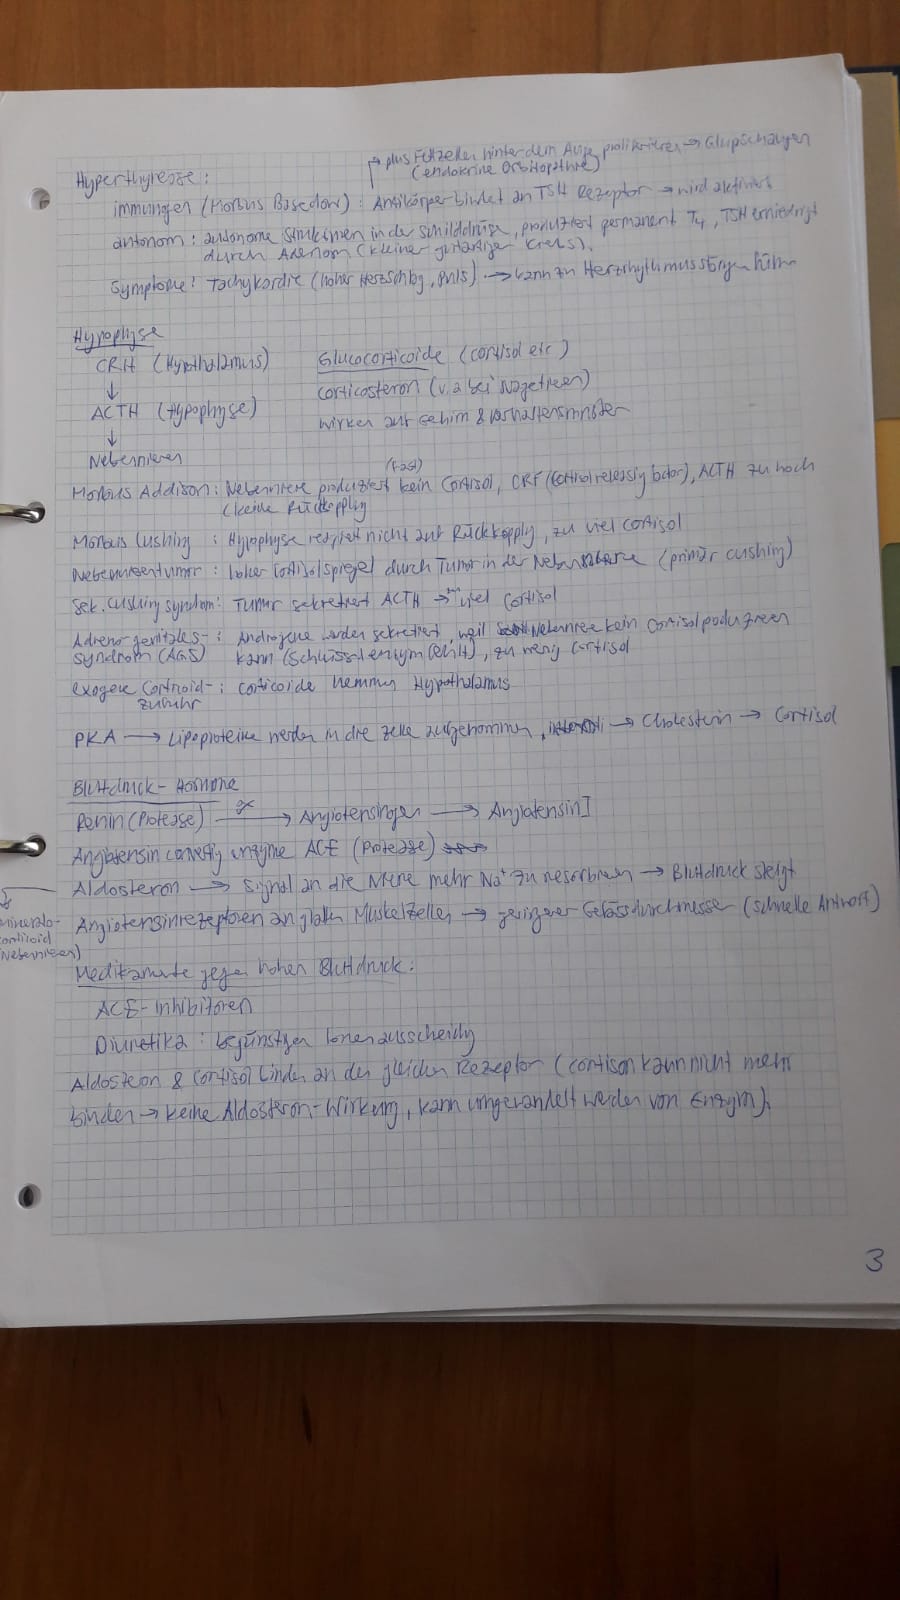 plus Fettzellen hinter dem Auge proliferieren → Glupschaugen
(endokrine Orbitopathie)
Hyperthyreose:
immunogen (Morbus Basedow): Antikörper bindet an TSH Rezeptor → wird aktiviert
autonom: autonome Strukturen in der Schilddrüse, produziert permanent T4, TSH erniedrigt
durch Adenom (kleiner gutartiger Krebs).
Symptome: Tachykardie (hoher Herzschlag, Puls) → kann zu Herzrhythmusstörungen führen
Hypophyse
CRH (Hypothalamus) Glucocorticoide (cortisol etc)
↓ corticosteron (v.a bei Nagetieren)
ACTH (Hypophyse) wirken auf Gehirn & Verhaltensmuster
↓
Nebennieren
(fast)
Morbus Addison: Nebenniere produziert kein Cortisol, CRF (Cortisol releasing factor), ACTH zu hoch
(keine Rückkopplung
Morbus Cushing: Hypophyse reagiert nicht auf Rückkopplung, zu viel cortisol
Nebennierentumor: hoher Cortisolspiegel durch Tumor in der Nebenniere (primär cushing)
Sek. Cushing syndrom: Tumor sekretiert ACTH → viel Cortisol
Adrenogenitales-: Androgene werden sekretiert, weil Nebenniere kein Cortisol produzieren
syndrom (AGS) kann (Schlüsselenzym fehlt), zu wenig cortisol
exogene Corticoid-: corticoide hemmen Hypothalamus
zufuhr
PKA → Lipoproteine werden in die Zelle aufgenommen, → Cholesterin → Cortisol
Blutdruck-Hormone
Renin (Protease) → Angiotensinogen → Angiotensin I
Angiotensin converting enzyme ACE (Protease)
Aldosteron → Signal an die Niere mehr Na+ zu resorbieren → Blutdruck steigt
Angiotensinrezeptoren an glatten Muskelzellen → geringerer Gefässdurchmesser (schnelle Antwort)
mineralo-
corticoid
Nebennieren)
Medikamente gegen hohen Blutdruck:
ACE-Inhibitoren
Diuretika: begünstigen Ionenausscheidung
Aldosteron & Cortisol binden an den gleichen Rezeptor (cortison kann nicht mehr
binden → keine Aldosteron-Wirkung, kann umgewandelt werden von Enzym).
3